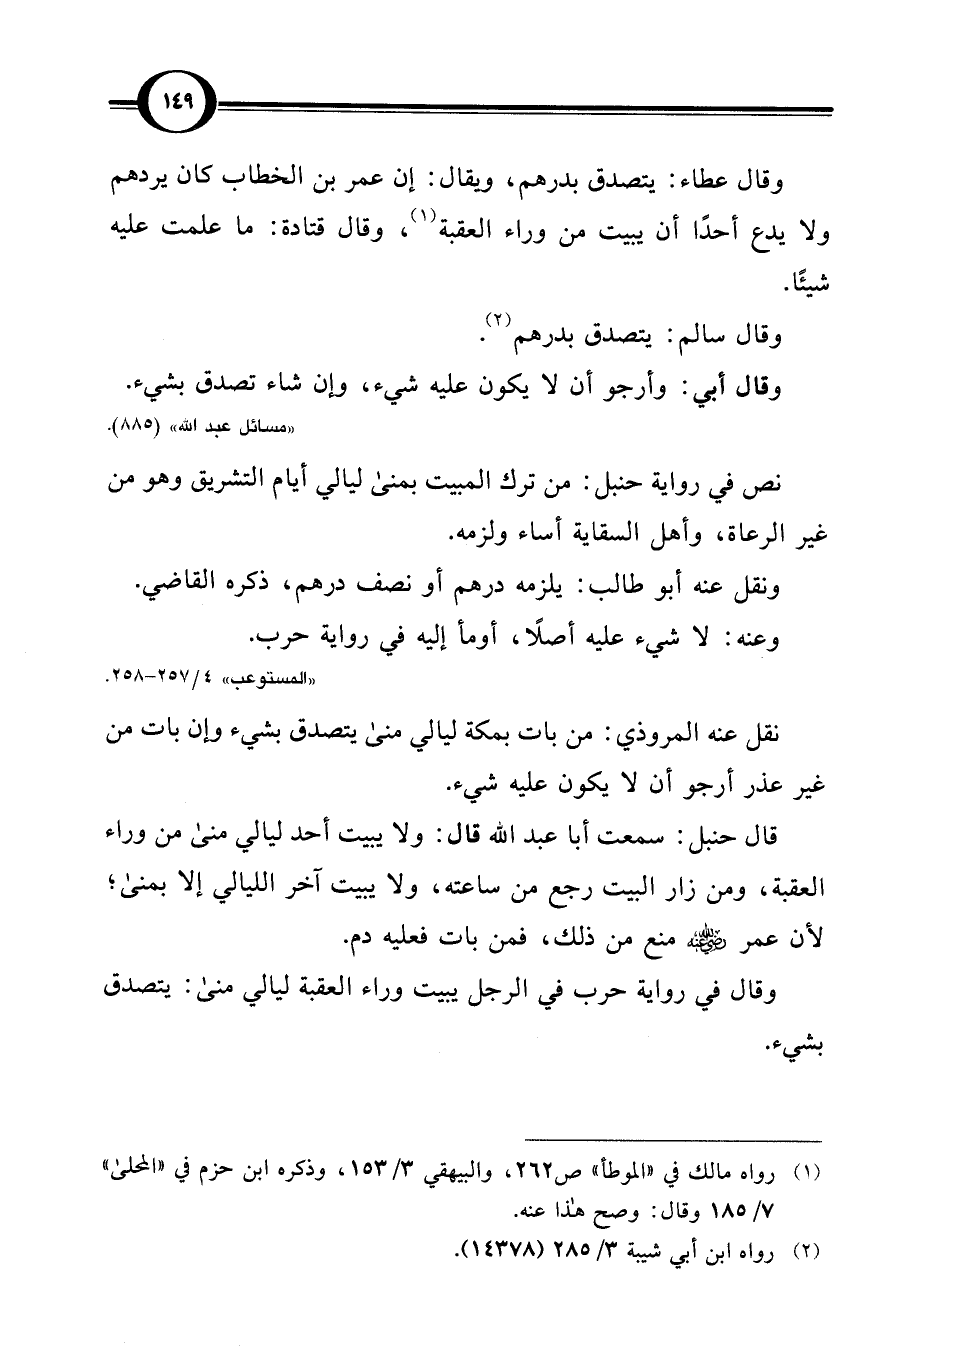 ١٤٩
وقال عطاء: يتصدق بدرهم، ويقال: إن عمر بن الخطاب كان يردهم
ولا يدع أحدًا أن يبيت من وراء العقبة(١)، وقال قتادة: ما علمت عليه
شيئًا.
وقال سالم: يتصدق بدرهم(٢).
وقال أبي: وأرجو أن لا يكون عليه شيء، وإن شاء تصدق بشيء.
«مسائل عبد الله» (٨٨٥).
نص في رواية حنبل: من ترك المبيت بمنىٰ ليالي أيام التشريق وهو من
غير الرعاة، وأهل السقاية أساء ولزمه.
ونقل عنه أبو طالب: يلزمه درهم أو نصف درهم، ذكره القاضي.
وعنه: لا شيء عليه أصلًا، أومأ إليه في رواية حرب.
«المستوعب» ٤/ ٢٥٧-٢٥٨.
نقل عنه المروذي: من بات بمكة ليالي منىٰ يتصدق بشيء وإن بات من
غير عذر أرجو أن لا يكون عليه شيء.
قال حنبل: سمعت أبا عبد الله قال: ولا يبيت أحد ليالي منىٰ من وراء
العقبة، ومن زار البيت رجع من ساعته، ولا يبيت آخر الليالي إلا بمنىٰ؛
لأن عمر رضي الله عنه منع من ذلك، فمن بات فعليه دم.
وقال في رواية حرب في الرجل يبيت وراء العقبة ليالي منىٰ: يتصدق
بشيء.
(١) رواه مالك في «الموطأ» ص٢٦٢، والبيهقي ٣/ ١٥٣، وذكره ابن حزم في «المحلىٰ»
٧/ ١٨٥ وقال: وصح هٰذا عنه.
(٢) رواه ابن أبي شيبة ٣/ ٢٨٥ (١٤٣٧٨).